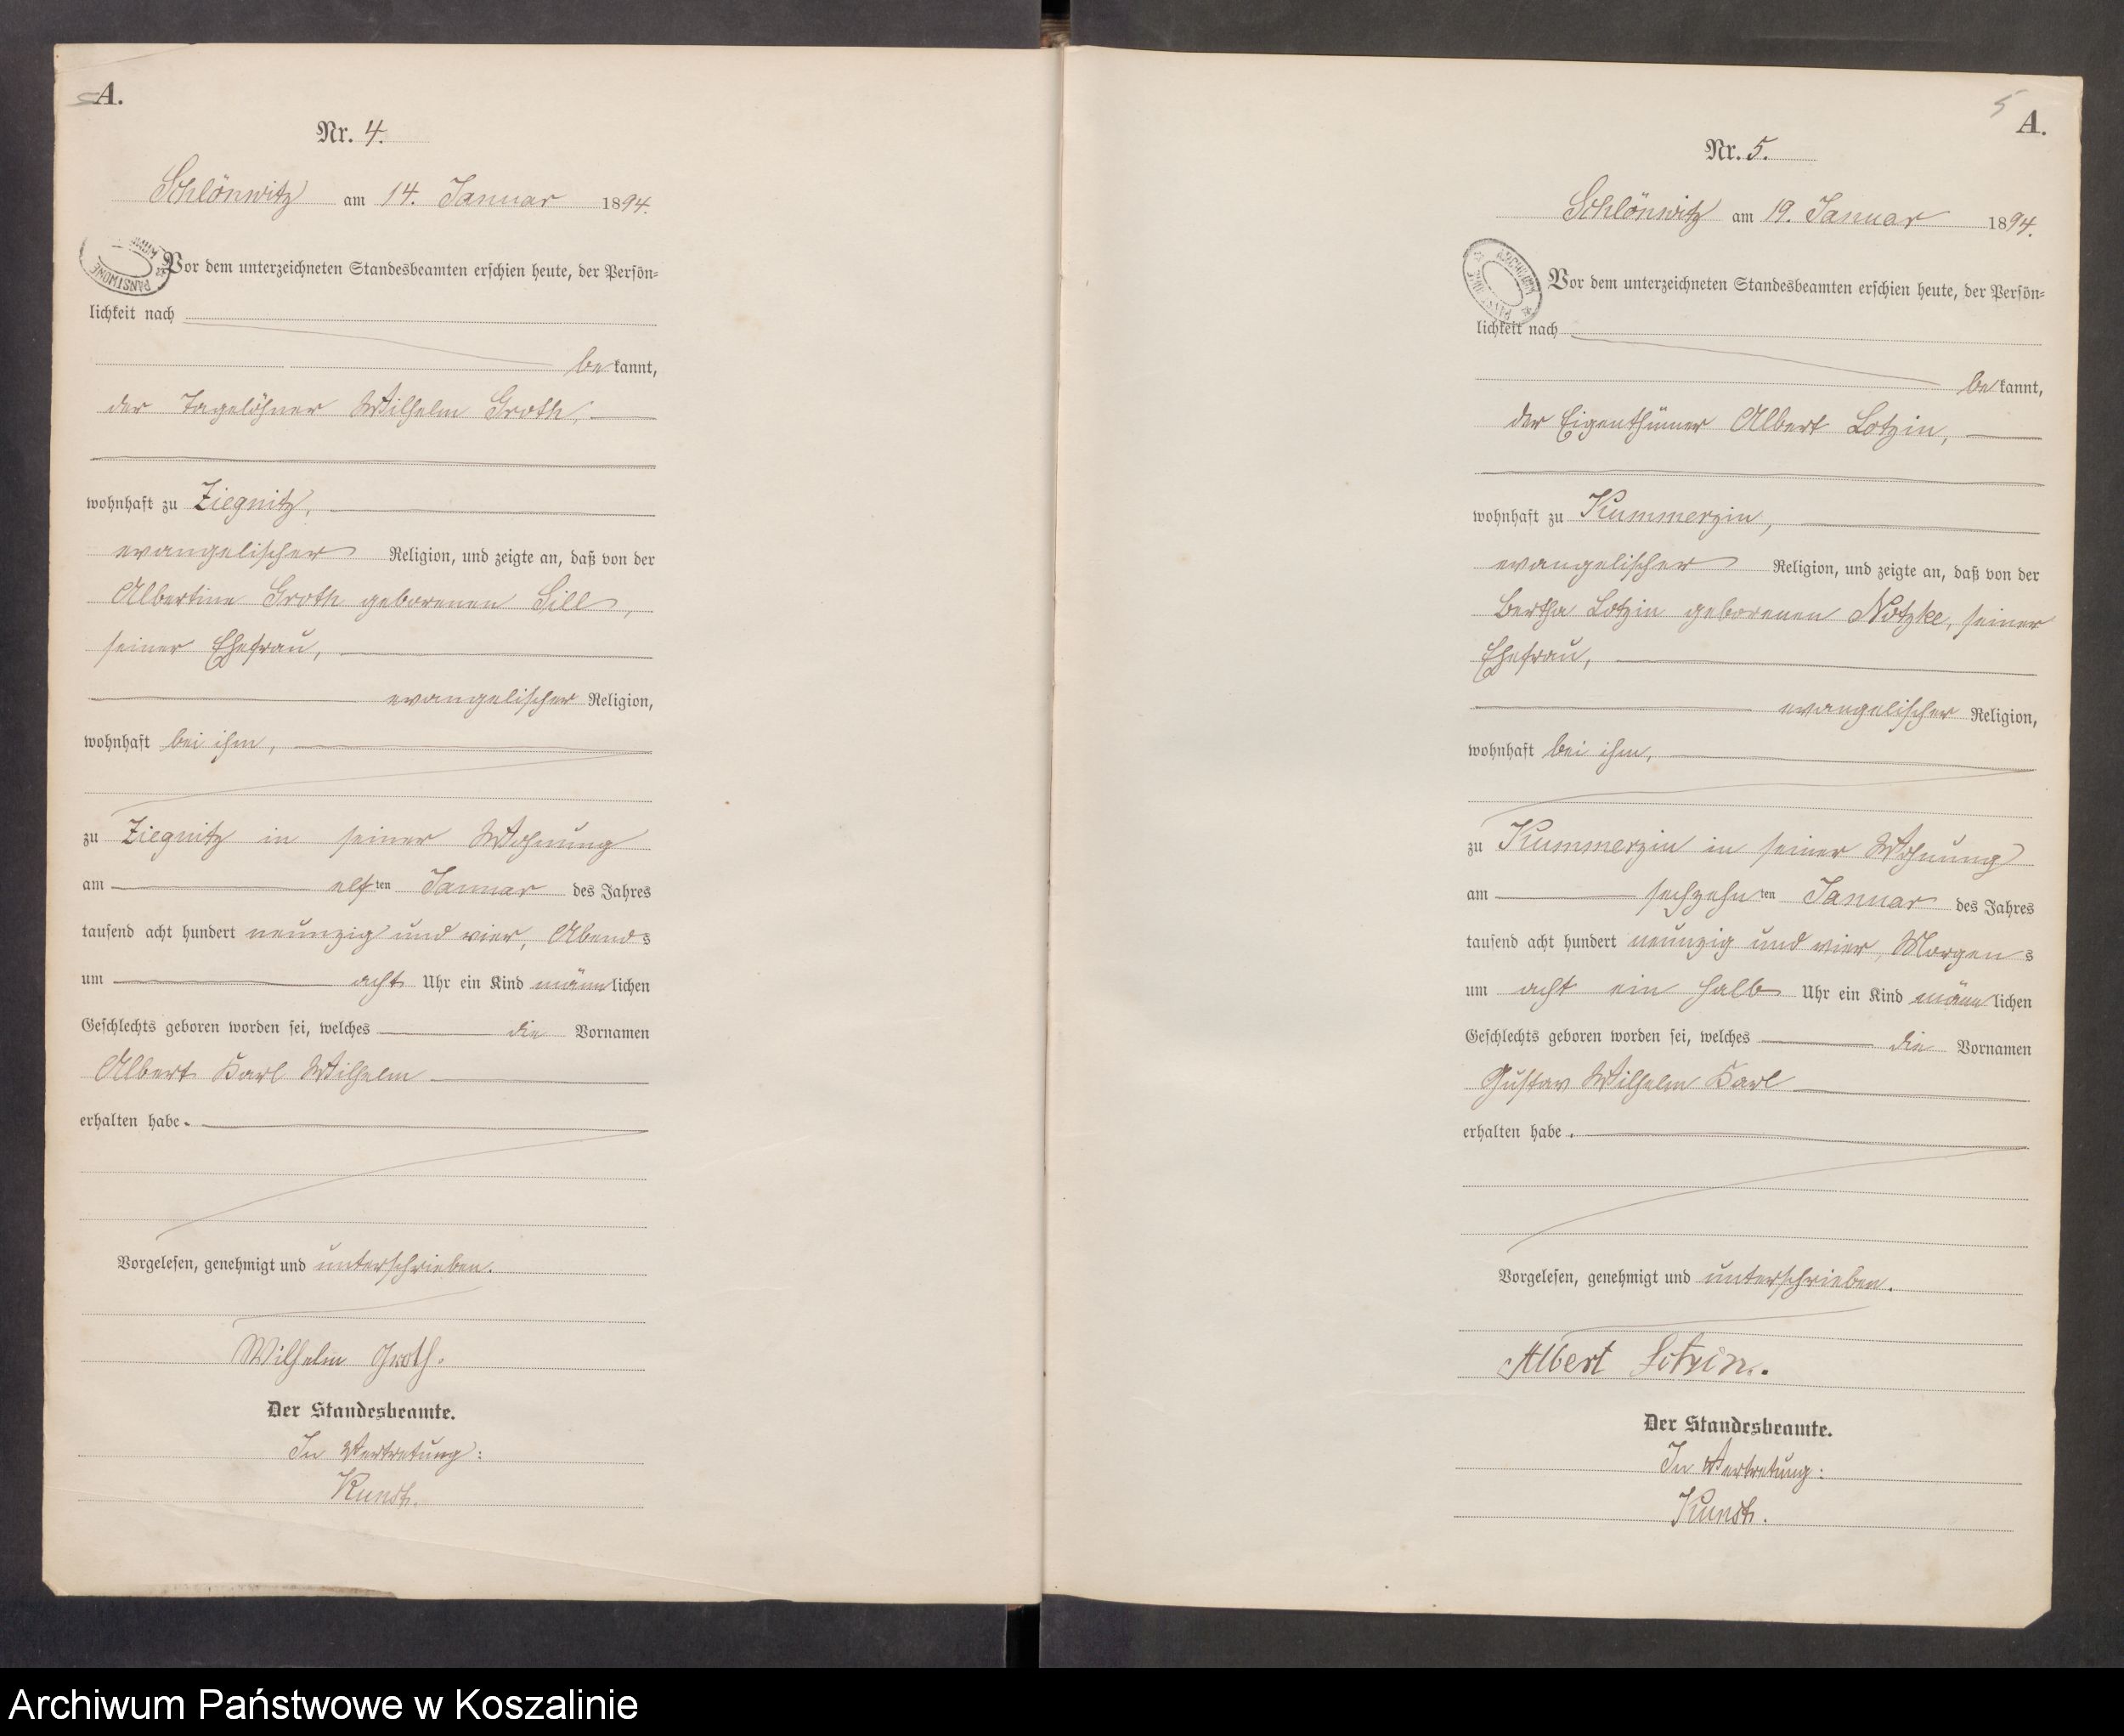 A.
Nr. 4.
Schlönwitz am 14. Januar 1894.
Vor dem unterzeichneten Standesbeamten erschien heute, der Persön-
lichkeit nach
bekannt,
der Tagelöhner Wilhelm Groth,
wohnhaft zu Ziegnitz,
evangelischer Religion, und zeigte an, daß von der
Albertine Groth geborenen Sill,
seiner Ehefrau,
evangelischer Religion,
wohnhaft bei ihm,
zu Ziegnitz in seiner Wohnung
am elften Januar des Jahres
tausend acht hundert neunzig und vier, Abends
um acht Uhr ein Kind männlichen
Geschlechts geboren worden sei, welches die Vornamen
Albert Karl Wilhelm
erhalten habe.
Vorgelesen, genehmigt und unterschrieben.
Wilhelm Groth.
Der Standesbeamte.
In Vertretung:
Kunst.
5
A.
Nr. 5.
Schlönwitz am 19. Januar 1894.
Vor dem unterzeichneten Standesbeamten erschien heute, der Persön-
lichkeit nach
bekannt,
der Eigenthümer Albert Lotzin,
wohnhaft zu Kummerzin,
evangelischer Religion, und zeigte an, daß von der
Bertha Lotzin geborenen Notzke, seiner
Ehefrau,
evangelischer Religion,
wohnhaft bei ihm,
zu Kummerzin in seiner Wohnung
am sechzehnten Januar des Jahres
tausend acht hundert neunzig und vier, Morgens
um acht ein halb Uhr ein Kind männlichen
Geschlechts geboren worden sei, welches die Vornamen
Gustav Wilhelm Karl
erhalten habe.
Vorgelesen, genehmigt und unterschrieben.
Albert Lotzin.
Der Standesbeamte.
In Vertretung:
Kunst.
Archiwum Państwowe w Koszalinie